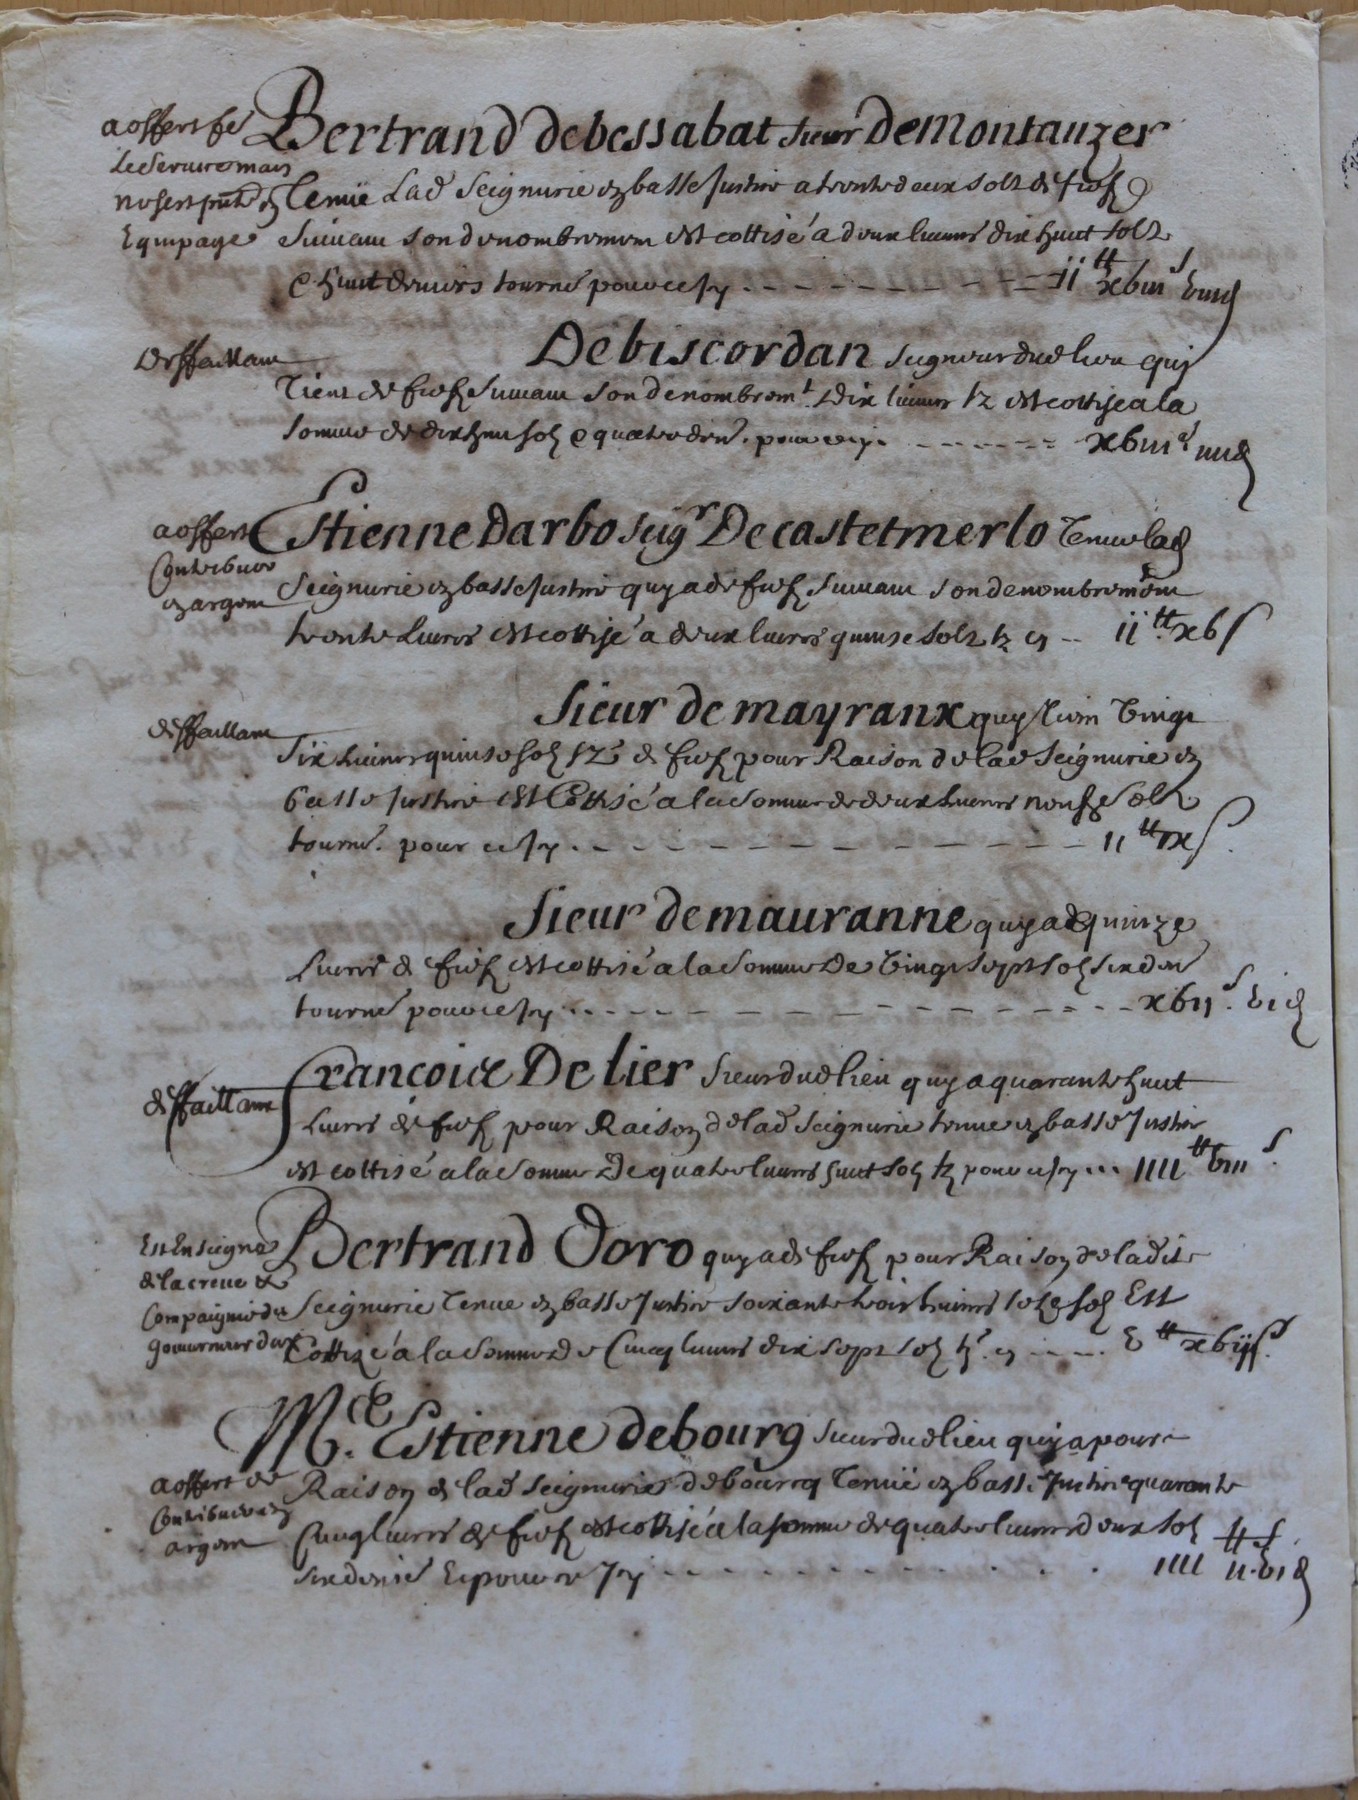 a offert fe
le service mais
n'a sert
Equipage
Bertrand debessabat sieur DeMontauzer
Tenue Lad Seignurie en basse Justice a trente deux solz de fief
Suivant son denombremem est cottisé a deux livres dix huict solz
e huict deniers tourné pour cesy ii tt xbiii s biiid
deffaillant
Debiscordan seigneur dud lieu quy
Tient de fief Suivant son denombremt. dix livres tz est cottise a la
somme de dix huit solz e quatre den. pour cesy xbiii s iiiid
a offert
Contribuer
en argent
Estienne Darbo seigr De castetmerlo Tenue lad
Seignurie en basse Justice quy a de fief suivant son denombrement
trente Livres est cottisé a deux livres quinse solz tz cy ii tt xb s
deffaillant
Sieur de mayranx quy tient Vingt
Six livres quinse solz tz de fief pour Raison de lad Seignurie en
basse Justice est Cottisé a la somme de deux livres neuf solz
tourné. pour cesy ii tt ix s
Sieur de mauranne quy a de quinze
Livres de fief est cottisé a la somme De Vingt sept solz six den
tourné pour cesy xbii s. bi d
deffaillant
Francoice De lier sieur dud lieu quy a quarante huict
Livres de fief pour Raison de lad Seignurie tenue en basse Justice
est cottisé a la somme De quatre livres huict solz tz pour cesy iiii tt biii s
Est Enseigne
de la creue et
Compaignie du
gouverneur dax
Bertrand Doro quy a de fief pour Raison de ladite
Seignurie Tenue en basse Justice soixante trois livres seze solz Est
Cottizé a la somme De Cincq livres dix sept solz tz. cy b tt xbii s.
a offert de
Contribuer en
argent
Me. Estienne debourg sieur dud lieu quy a pour
Raison de lad Seignurie debourcq Tenue en basse Justice quarante
Cincq livres de fief est cottisé a la somme de quatre livres deux solz
six denié Et pour ce Jcy iiii tt ii s bi d